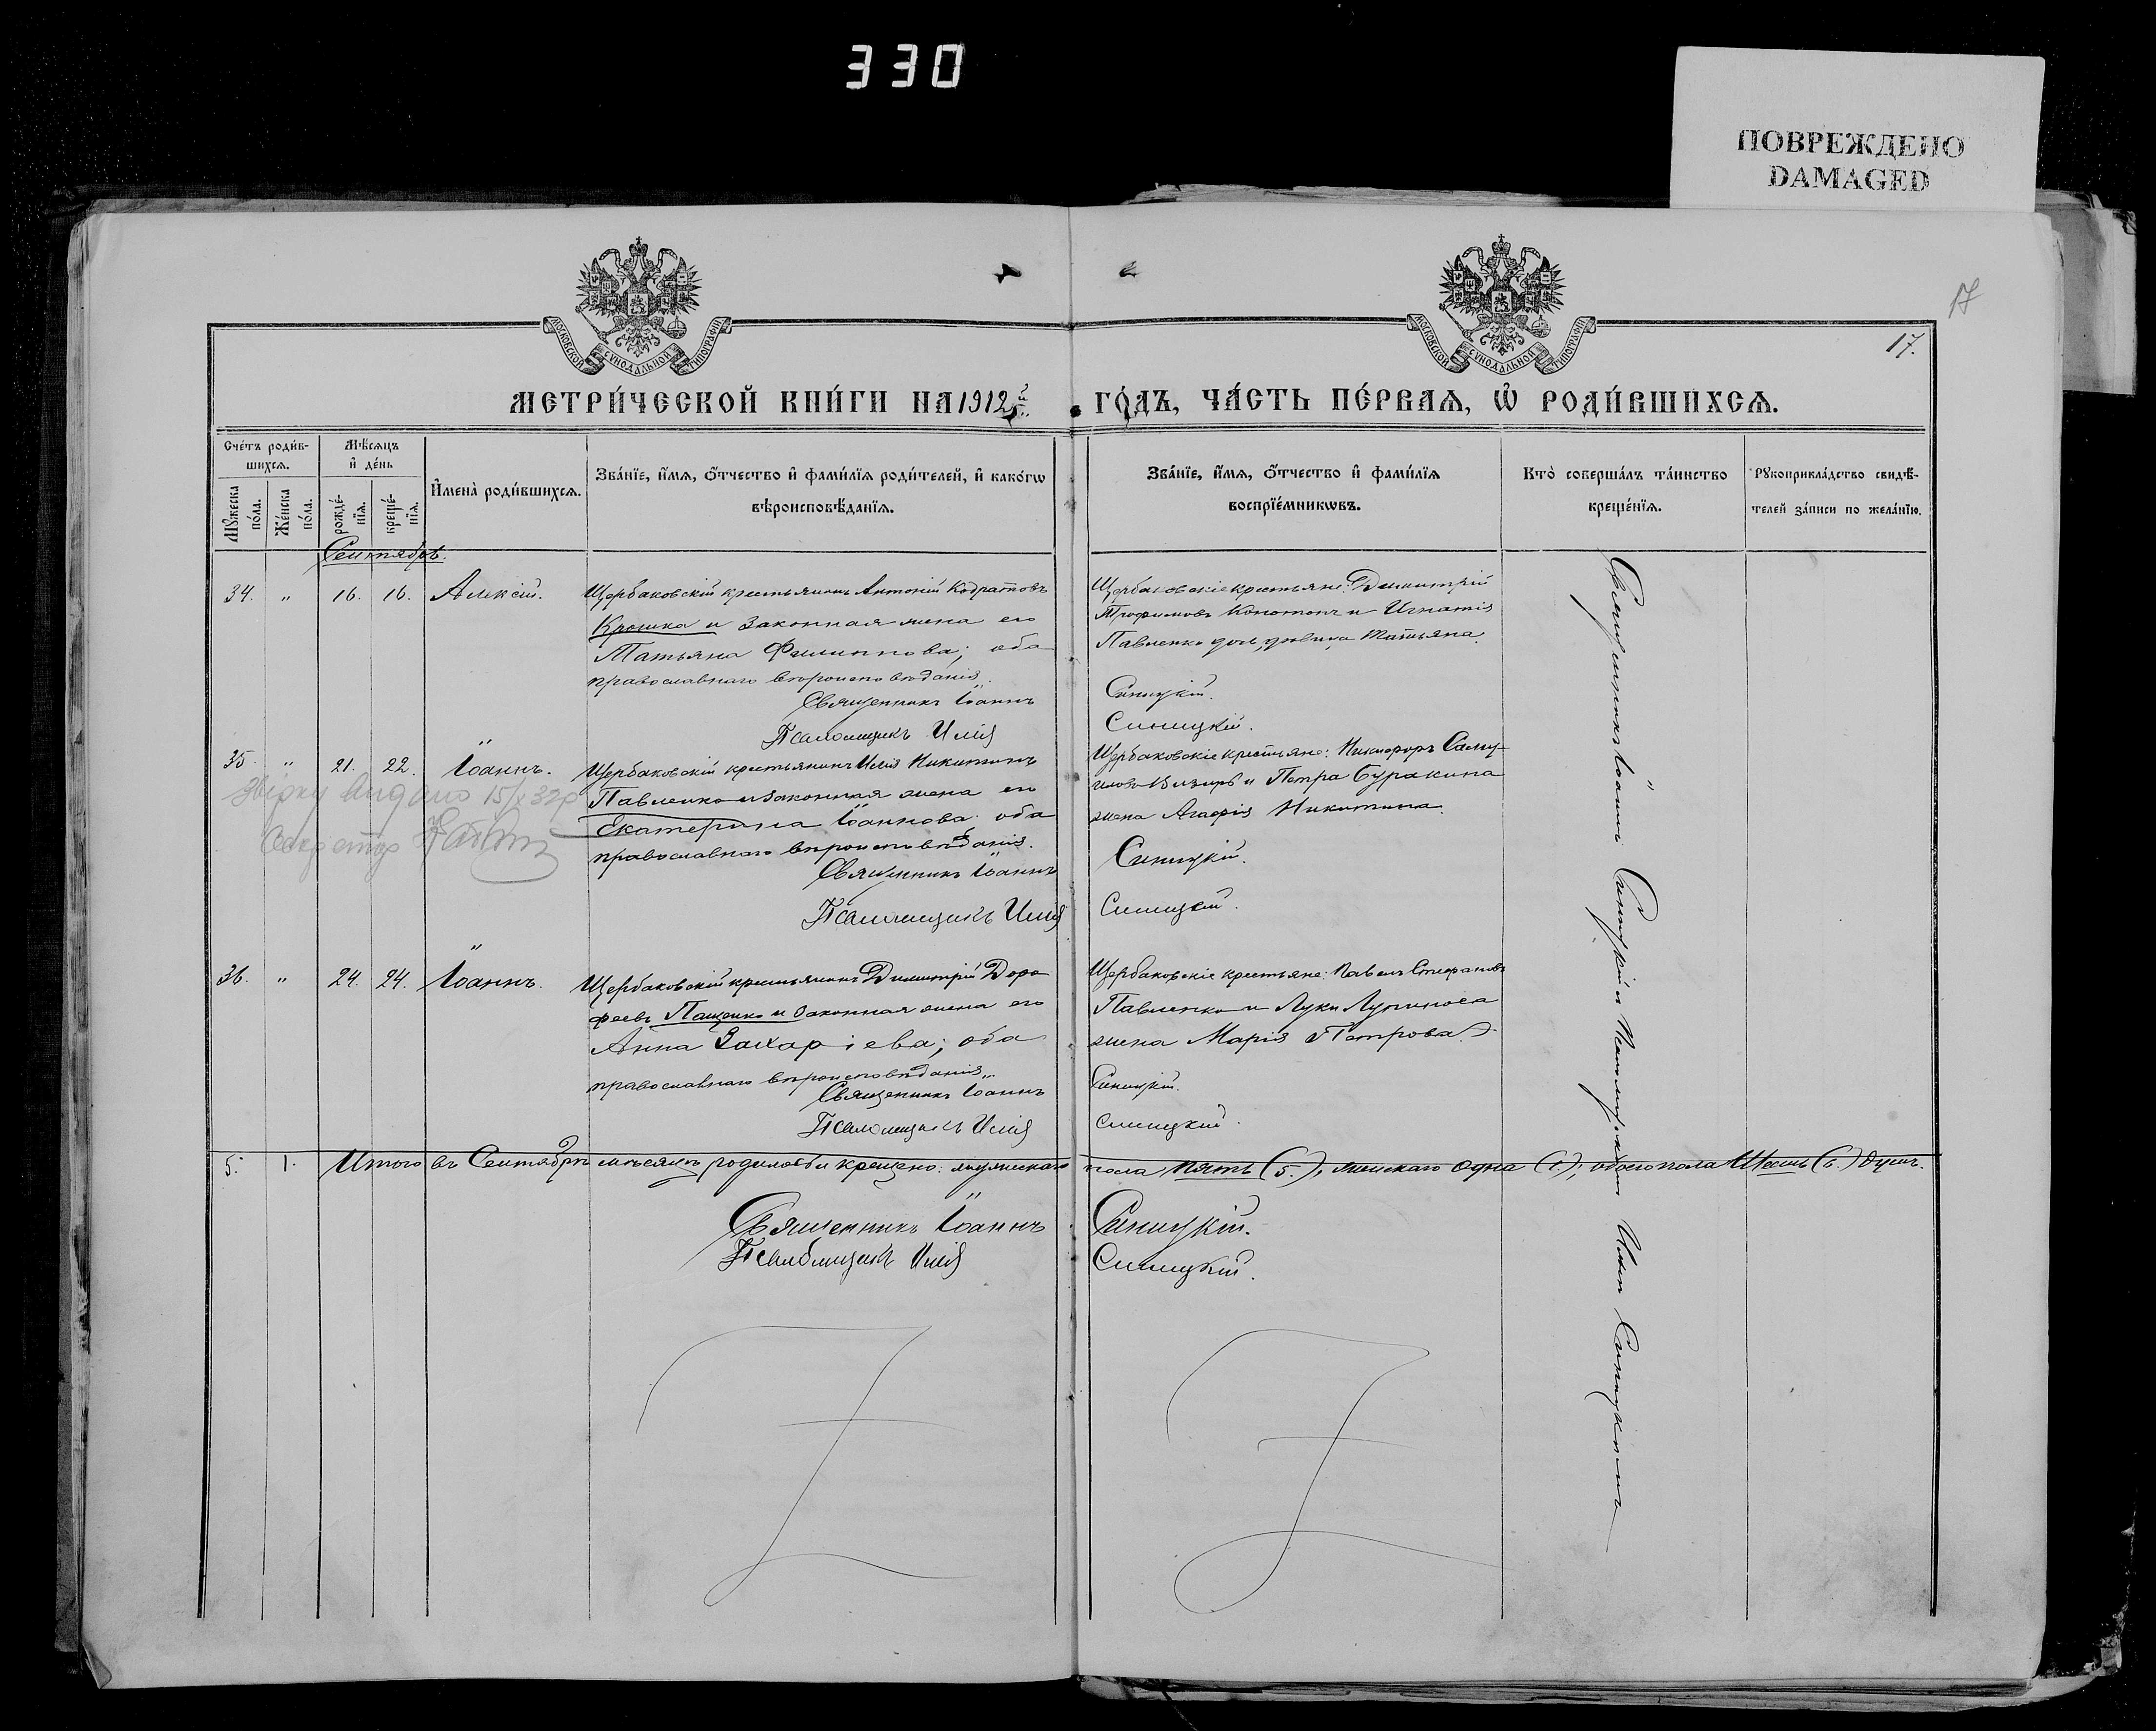 330
ПОВРЕЖДЕНО
DAMAGED
17
17.
МОСКОВСКОЙ СѴНОДАЛЬНОЙ ТИПОГРАФІИ
МОСКОВСКОЙ СѴНОДАЛЬНОЙ ТИПОГРАФІИ
МЕТРИ́ЧЕСКОЙ КНИ́ГИ НА 1912й ГО́ДЪ, ЧА́СТЬ ПЕ́РВАѦ, Ѡ҆ РОДИ́ВШИХСѦ.
Сче́тъ роди́в-
шихсѧ.
Мꙋ́жеска по́ла.
Же́нска по́ла.
Мѣ́сѧцъ
и҆ де́нь
рожде́-
нїѧ.
креще́-
нїѧ.
И҆мена̀ роди́вшихсѧ.
Зва́нїе, и҆́мѧ, ѻ҆́тчество и҆ фами́лїѧ роди́телей, и҆ како́гѡ
вѣроисповѣ́данїѧ.
Зва́нїе, и҆́мѧ, ѻ҆́тчество и҆ фами́лїѧ
воспрїе́мникѡвъ.
Кто̀ соверша́лъ та́инство
креще́нїѧ.
Рꙋкоприкла́дство свидѣ́-
телей за́писи по жела́нїю.
Сентябрь.
34. " 16. 16. Алексій.
Щербаковскій крестьянинъ Антоній Кодратовъ
Крошка и законная жена его
Татьяна Филиппова; оба
православнаго вѣроисповѣданія.
Священникъ Іоаннъ
Псаломщикъ Илія
Щербаковскіе крестьяне: Димитрій
Трофимовъ Конотопъ и Игнатія
Павленко дочь, дѣвица Татьяна.
Синицкій.
Синицкій.
35. " 21. 22. Іоаннъ.
Щербаковскій крестьянинъ Илія Никитинъ
Павленко и законная жена его
Екатерина Іоаннова; оба
православнаго вѣроисповѣданія.
Священникъ Іоаннъ
Псаломщикъ Илія
Звірку видано 15/ 32р
Секретар
Щербаковскіе крестьяне: Никифоръ Саму-
иловъ Визирь и Петра Буракина
жена Агафія Никитина.
Синицкій.
Синицкій.
36. " 24. 24. Іоаннъ.
Щербаковскій крестьянинъ Димитрій Доро
феевъ Пащенко и законная жена его
Анна Захаріева; оба
православнаго вѣроисповѣданія.
Священникъ Іоаннъ
Псаломщикъ Илія
Щербаковскіе крестьяне: Павелъ Стефановъ
Павленко и Луки Лупиноса
жена Марія Петрова.
Синицкій.
Синицкій.
Священникъ Іоаннъ Синицкій съ Псаломщикомъ Иліею Синицкимъ
5. 1. Итого въ Сентябрѣ мѣсяцѣ родилось и крещено: мужескаго пола пять (5.), женскаго одна (1.); обоего пола Шесть (6.) душъ.
Священникъ Іоаннъ Синицкій.
Псаломщикъ Илія Синицкій.